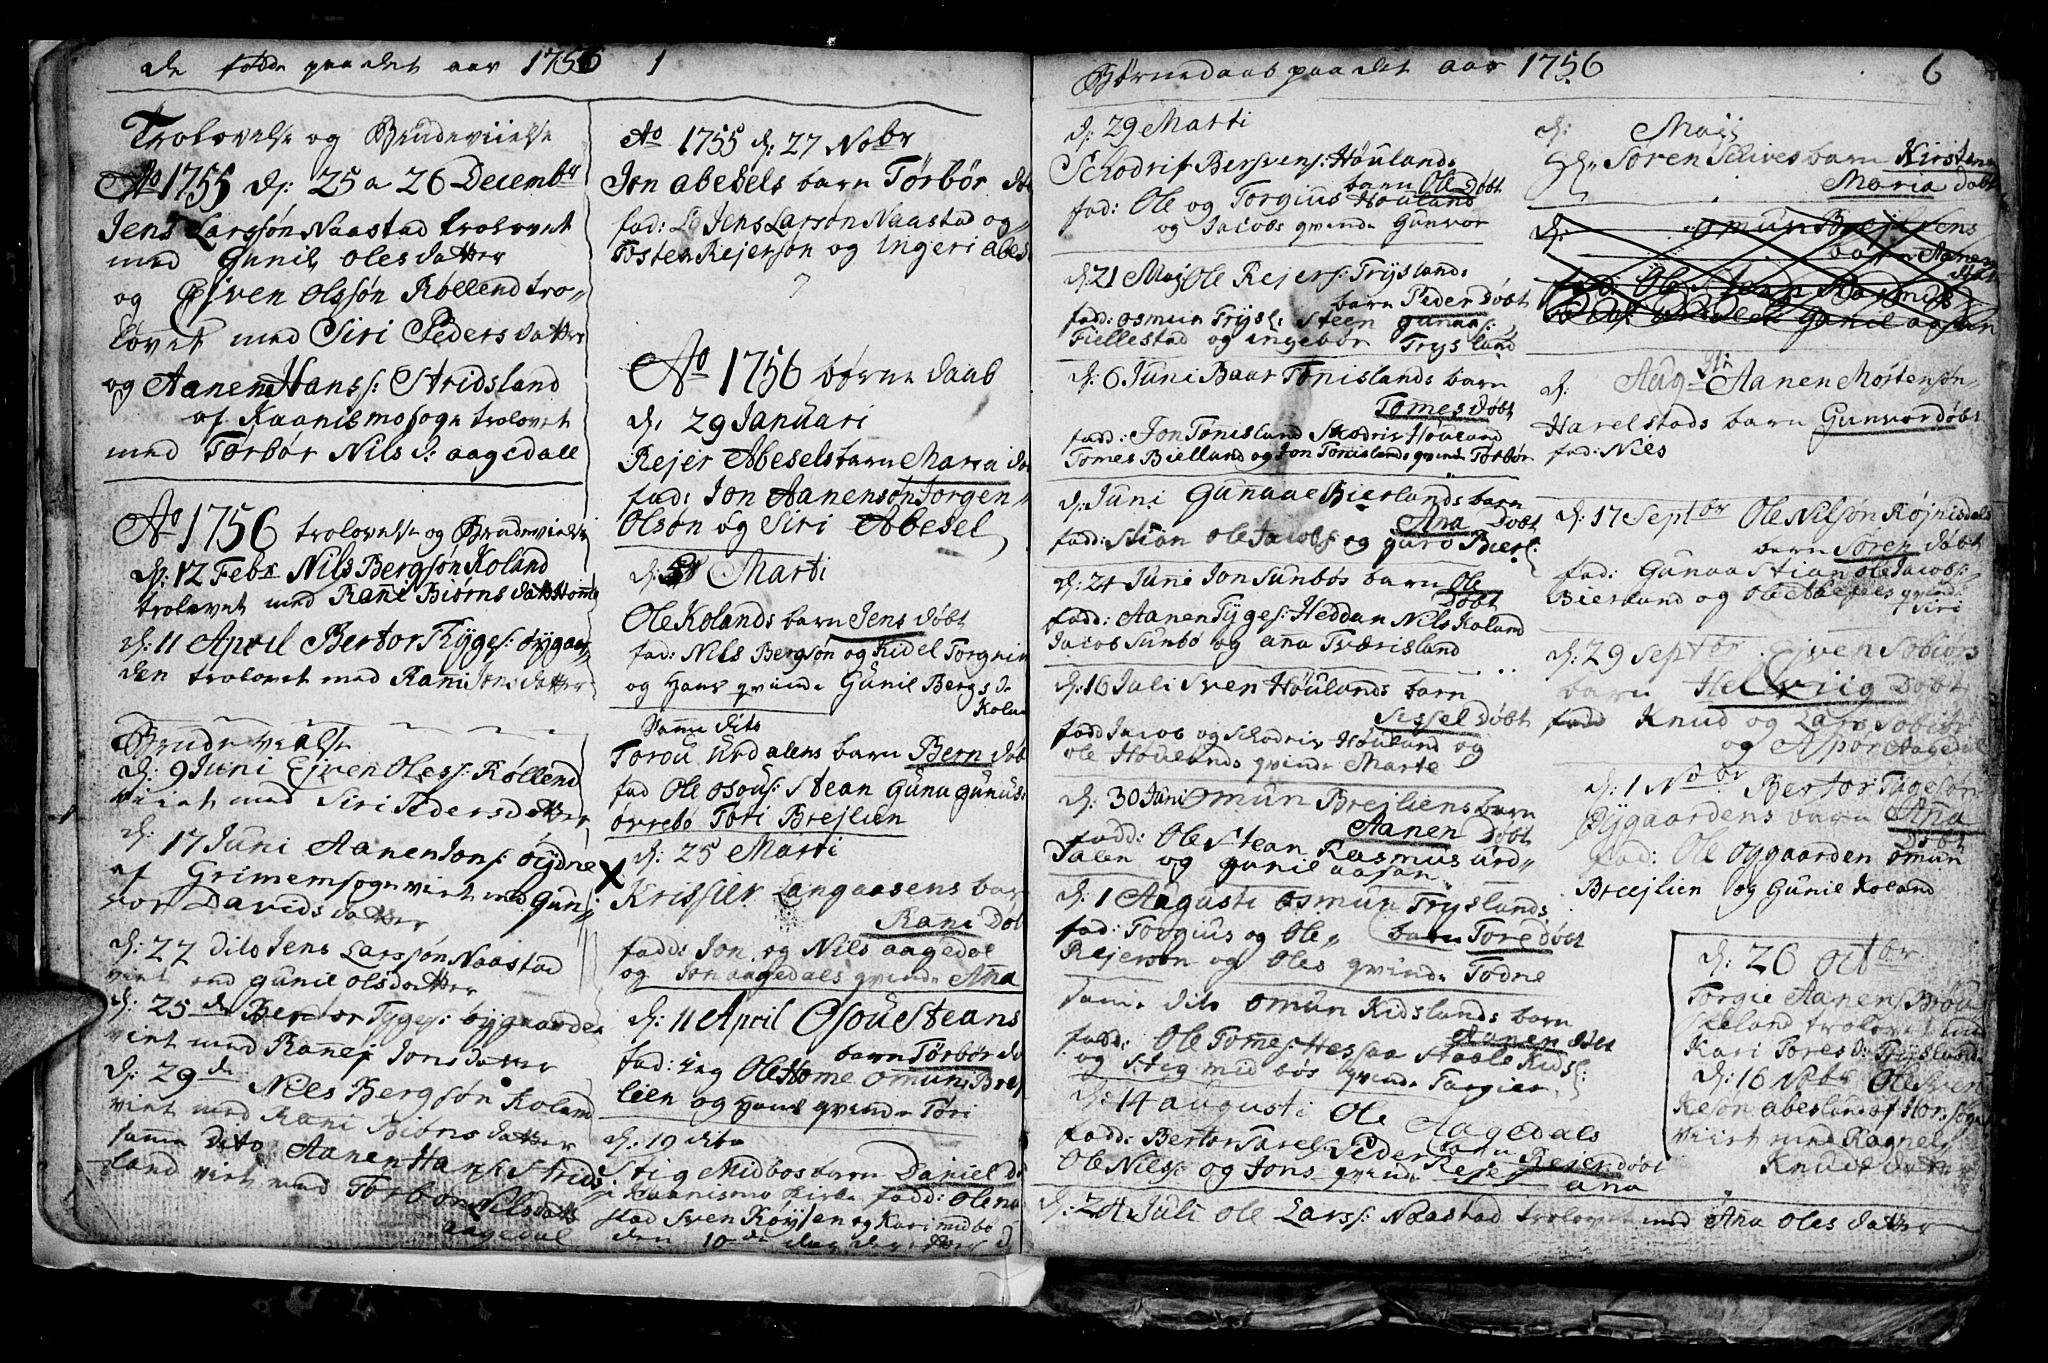 de fødde paa det aar 1756 1
Trolovelse og Brudeviielse
Ao 1755 d: 25 a 26 Decembr
Jens Larssøn Naastad trolovet
med Gunil Olesdatter
og Ejven Olssøn Røllend tro-
lovet med Siri Pedersdatter
og Aanen Hanss: Stridsland
af Kaanismo sogn trolovet
med Torbør Nils d: aagedall
Ao 1756 trolovelse og Brudevielse
d: 12 Febr Nils Bergsøn Koland
trolovet med Rani Biørnsdatter
d: 11 April Bertor Tygess: øygaar
den trolovet med Rani Jonsdatter
Brude vielse
d: 9 Juni Ejven Oless: Røllend
viet med Siri Pedersdatter
d: 17 Juni Aanen Jons: øydne
af Grimem sogn viet med Gun
vor Davidsdatter
d: 22 dito Jens Larssøn Naastad
viet med Gunil Olsdatter
d: 25 de Bertor Tyges: øygaarden
viet med Ranej Jonsdatter
d: 29 de Niels Bergsøn Koland
viet med Rani Biørnsdatter
samme Dito Aanen Hans: Strids
land viet med Torbor Nilsdatt
aagedal
Ao 1755 d: 27 Nobr
Jon abesels barn Torbør
fad: Jens Larsøn Naastad og
Tosten Rejersøn og Ingeri abes
Ao 1756 børne daab
d: 29 Januari
Rejer Abesels barn Maria
fad: Jon Aanensøn Jorgen
Olsøn og Siri Abesel
d: Marti
Ole Kolands barn Jens døbt
fad: Nils Bergsøn og Kidel Torgni
og Hans qvinde Gunil Bergs d
Kolan
Samme dito
Torou Urdalens barn Bern døb
fad Ole osous: Stean Gunu Gunus:
ørrebø Tori Brejlien
d: 25 Marti
X Krissien Langaasens bar
Rani Døb
fadd: Jon og Nils aagedal
og Jon aagedals qvinde Ana
d: 11 April Osou Steans
barn Torbør dø
fad: jeg Ole Home omun Brej
lien og Hans qvinde Tori
d: 19 dito
Stig Midbos barn Daniel d
i Kaanismo Kirke fadd: Ole
stad Sven Køysen og Kari midbø
den 10de dag der etter
Børnedaab paa det aar 1756 6
d: 29 Marti
Schodrif Bersvens: Høulands
barn Ole Døbt
fad: Ole og Torgius Høuland
og Jacobs qvinde Gunvor
d: 21 Maj Ole Rejers: Tryslands
barn Peder Døbt
fadd: osmun Trysl: Steen gunaas:
Fiellestad og ingebør Trysland
d: 6 Juni Baar Tonislands barn
Tomes døbt
fadd: Jon Tonisland Skodriv Høuland
Tomes Bielland og Jon Tonislands qvinde Torbør
d: Juni Gunaae Bierlands barn
Ana Døbt
fadd: Stian Ole Jacobs: og guro Bierl:
d: 24 Juni Jon Sunbøs barn Ole
Døbt
fadd: Aanen Tyges: Heddan Nils Koland
Jacob Sunbø og ana Tværisland
d: 16 Juli Sven Høulands barn
Sissel døbt
fadd Jacob og schodriv Høuland og
ole Høulands qvinde Marte
d: 30 Juni omun Brejliens barn
Aanen Døbt
fadd: Ole Stean Rasmus Urd-
Dalen og gunil aasan
d: 1 Augusti osmun Tryslands
fad: Torgius og Ole barn Tore døbt
Rejersøn og Oles qvinde Todne
samme dito omun Kidslands barn
Aanen døbt
fadd: Ole Tomes: Hessaa Staale Kidsl:
og Stig mid bøs qvinde Targier
d: 14 augusti Ole Aagedals
barn Rejer døbt
fadd: Bertor Tarels: Peder
Ole Nils: og Jons qvinde ana
d: 24 Juli Ole Larss: Naastad trolovet med Ana Olesdatter
d: Maij
Sl. Søren Schives barn Kirsten
Maria døbt
d: omun Brejliens
barn Aanen
døbt
fad: Ole Stean Rasmus
Urdalen Gunil aasan
d: Aug Sti Aanen Mortensøn
Harelstads barn Gunvor døbt
fad: Nies
d: 17 Septbr Ole Nilsøn Røjnisdals
barn Søren Døbt
fad: Gunaa Stian Ole Jacobs:
Bierland og Ole Abesels qvinde
Siri
d: 29 Septbr Ejven Sobiors
barn Hellviig Døbt
fadd Knud og Lars Sobior
og Aspør Aagedal
d: 1 Nobr Bertor Tygesøn
Øygaardens barn Ana
Døbt
fad: Ole øggaarden omun
Breejlien og Gunil Koland
d: 26 octbr
Torgie Aanens: Brøu
skeland trolovet med
Kari Tores d: Trysland
d: 16 Nobr Ole Sven
Kesøn abesland af Hor: sogn
viet med Ragnel
Knudsdatter